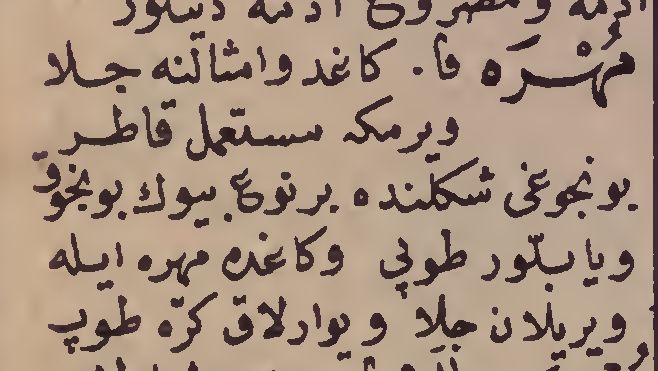 ادرمه ومصروع ادنه دينلور
مُهْرَه فا. كاغد وامثالنه جلا
ويرمكه مستعمل قاطر
بونجوغى شكلنده برنوع بيوك بونجوق
ويا بلّور طوپى وكاغده مهره ايله
ويريلان جلا ويوارلاق كرّه طوپ